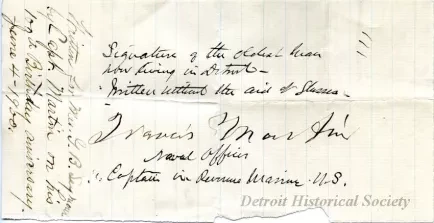 Signature of the oldest man
now living in Detroit –
Written without the aid of Glasses –
Francis Martin
Naval Officer
Captain in Revenue Marine U.S.
Written for Mrs. G. B.
by Capt. Martin on his
Birthday aniversary.
June 4 – 1900.
Detroit Historical Society